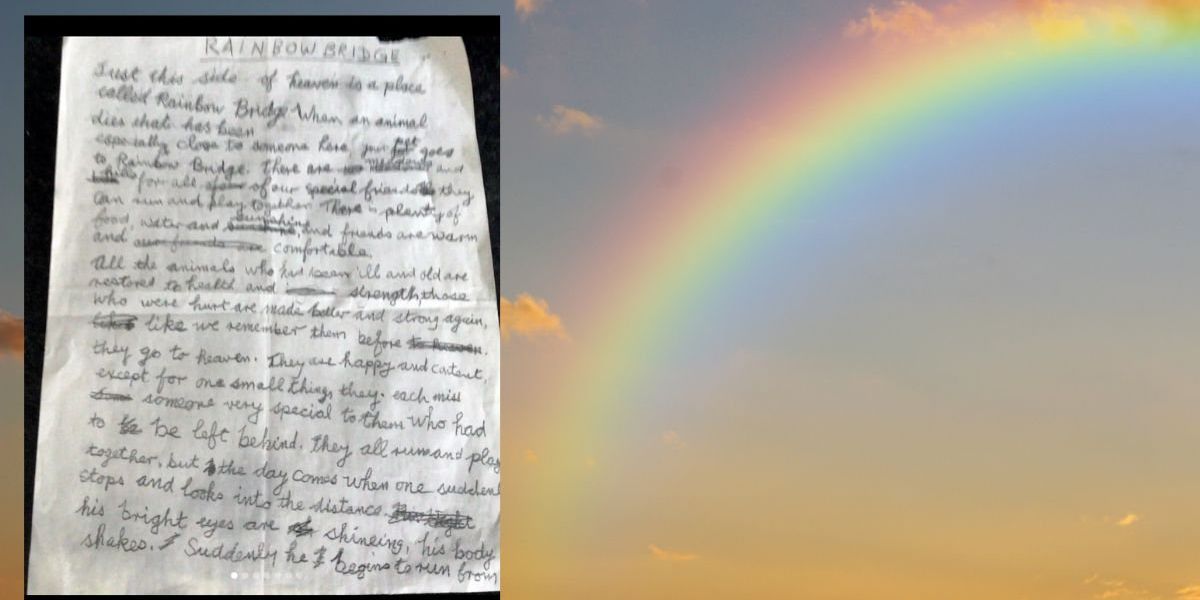 RAINBOW BRIDGE
Just this side of heaven is a place
called Rainbow Bridge. When an animal
dies that has been
especially close to someone here, your pet goes
to Rainbow Bridge. There are meadows and
hills for all of our special friends they
can run and play together. There is plenty of
food, water and sunshine, and friends are warm
and our friends are comfortable.
All the animals who had been ill and old are
restored to health and strength, those
who were hurt are made better and strong again,
like we remember them before to heaven.
they go to heaven. They are happy and content,
except for one small thing, they each miss
someone very special to them who had
to be left behind. They all run and play
together, but the day comes when one sudden
stops and looks into the distance. His bright
his bright eyes are shineing, his body
shakes. Suddenly he begins to run from